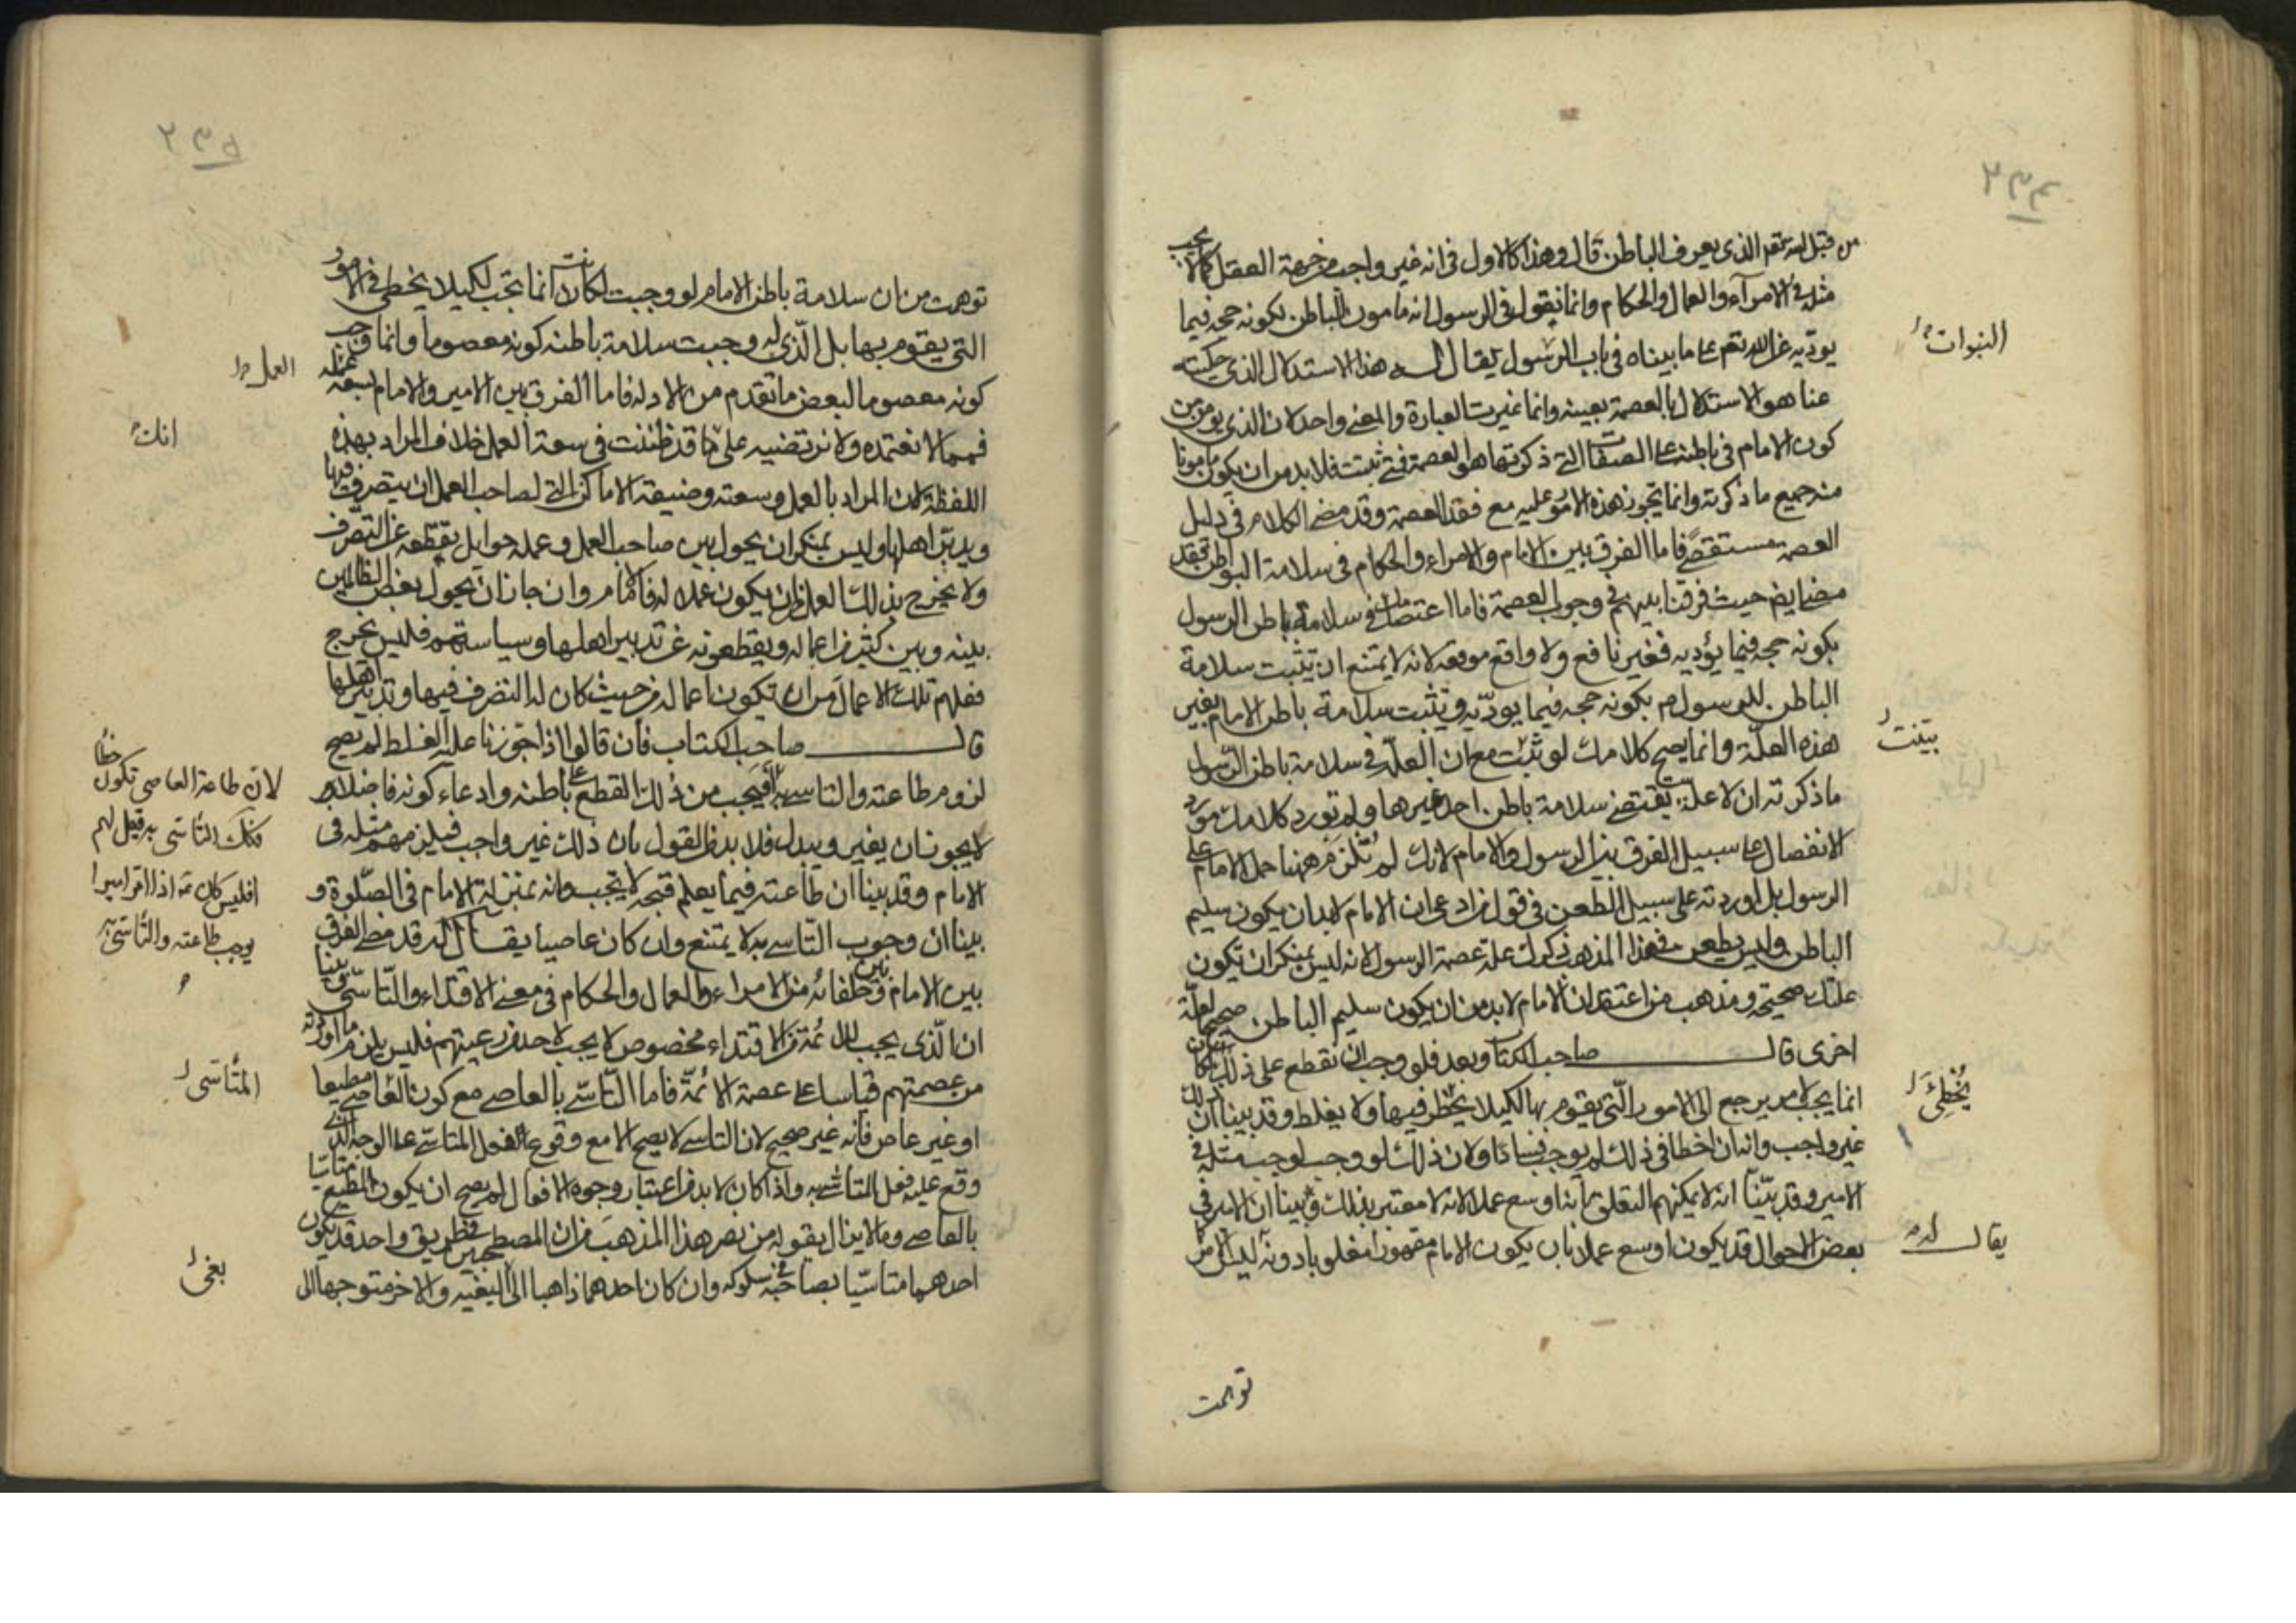 من قبل الله تعم الذي يعرف الباطن قال وهذا كالاول في انه غير واجب من جهة العقل كما لا يجب
مثله في الامرآء والعمال والحكام وانما نقول في الرسول انه مامون الباطن لكونه حجة فيما
يوديه عن الله تعم على ما بيناه في باب الرسول يقال له هذا الاستدلال الذي حكيته
النبوات
عنا هو الاستدلال بالعصمة بعينه وانما غيرت العبارة والمعنى واحد لان الذي يومن من
كون الامام في باطنه على الصفات التي ذكرتها هو العصمة فمتى ثبتت فلا بد من ان يكون مامونا
منه جميع ما ذكرته وانما تجوز هذه الامور عليه مع فقد العصمة وقد مضى الكلام في دليل
العصمة مستقصى فاما الفرق بين الامام والامراء والحكام في سلامة البواطن فقد
مضى ايضا حيث فرقنا بينهم في وجوب العصمة فاما اعتصامك في سلامة باطن الرسول
بكونه حجه فيما يؤديه فغير نافع ولا واقع موقعه لانه لا يمتنع ان تثبت سلامة
الباطن للرسول بكونه حجه فيما يوديه وتثبت سلامة باطن الامام بغير
هذه العلة وانما يصح كلامك لو ثبت مع ان العلة في سلامة باطن الرسول
بيّنت
ما ذكرته ان لا علة يقتضي سلامة باطن احد غيرها ولم تورد كلامك مورد
الانفصال على سبيل الفرق بين الرسول والامام لانك لم تلزم ههنا حمل الامام على
الرسول بل اوردته على سبيل الطعن في قول من ادعى ان الامام لابد ان يكون سليم
الباطن وليس يطعن في هذا المذهب ذكرك علة عصمة الرسول لانه ليس بمنكر ان تكون
علتك صحيحة ومذهب من اعتقد ان الامام لا بد من ان يكون سليم الباطن صحيحا لعلّة
اخرى قال صاحب الكتاب وبعد فلو وجب ان نقطع على ذلك لكان
انما يجب لامر يرجع الى الامور التي يقوم بها لكيلا يخطر فيها ولا يغلط وقد بينا ان ذلك
يُخْطِئَ
غير واجب وانه ان اخطا في ذلك لم يوجب فسادا ولان ذلك لو وجب لوجب مثله في
الامير وقد بيّنا انه لا يمكنهم التعلق بانه اوسع عملا لانه لا معتبر بذلك وبينا ان الامير في
بعض الاحوال قد يكون اوسع عملا بان يكون الامام مقهورا مغلوبا دونه ليس الامر كما
يقال له
توهمت
توهمت من ان سلامة باطن الامام لو وجبت لكانت انما تجب لكيلا يخطي في الامور
التي يقوم بها بل الذي له وجبت سلامة باطنه كونه معصوما وانما وجب
كونه معصوما لبعض ما تقدم من الادله فاما الفرق بين الامير والامام بسعة عمله
العمل
فمما لا نعتمده ولا نرتضيه على ما قد ظننت في سعة العمل خلاف المراد بهذه
انك
اللفظة لان المراد بالعمل وسعته وضيقه الاماكن التي لصاحب العمل ان يتصرف فيها
ويدبّر اهلها وليس بمنكر ان يحول بين صاحب العمل وعمله حوايل يقطعه عن التصرف
ولا يخرج بذلك العمل من ان يكون عملا له فالامام وان جاز ان يحول بعض الظالمين
بينه وبين كثير من اعماله ويقطعونه عن تدبير اهلها وسياستهم فليس يخرج
فعلهم تلك الاعمال من ان تكون اعماله من حيث كان له التصرف فيها وتدبير اهلها
قال صاحب الكتاب فان قالوا اذا جوزنا عليه الغلط لم يصح
لزوم طاعته والتاسي به فيجب من ذلك القطع على باطنه وادعاء كونه فاضلا
لا يجوز ان يغير ويبدل فلا بد من القول بان ذلك غير واجب فيلزمهم مثله في
الامام وقد بينا ان طاعته فيما يعلم قبحه لا يجب وانه بمنزلة الامام في الصّلوة و
بينا ان وجوب التاسي به لا يمتنع وان كان عاصيا يقال له قد مضى الفرق
لان طاعة العاصي تكون خطأ
فكك التأسي به قيل لهم
افليس كان اذا اقر اميرا
يوجب طاعته والتأسي به
بين الامام وبين خلفائه من الامراء والعمال والحكام في معنى الاقتداء والتّاسّي وبينا
ان الّذي يجب للائمّة من الاقتداء مخصوص لا يجب لاحد من رعيتهم فليس يلزم ما اوردته
من عصمتهم قياسا على عصمة الائمّة فاما التّاسّي بالعاصي مع كون العاصي مطيعا
المتأسّي
او غير عاص فانه غير صحيح لان التاسي لا يصح الا مع وقوع الفعل المتاسّي على الوجه الذي
وقع عليه فعل المتاسّى به واذا كان لا بد من اعتبار وجوه الافعال لم يصح ان يكون المطيع متاسيا
بالعاصي وما لا يزال يقوله من نصر هذا المذهب من ان المصطحبين في طريق واحد قد يكون
احدهما متاسّيا بصاحبه في سلوكه وان كان احدهما ذاهبا الى البغيه والاخر متوجها الى
بغي